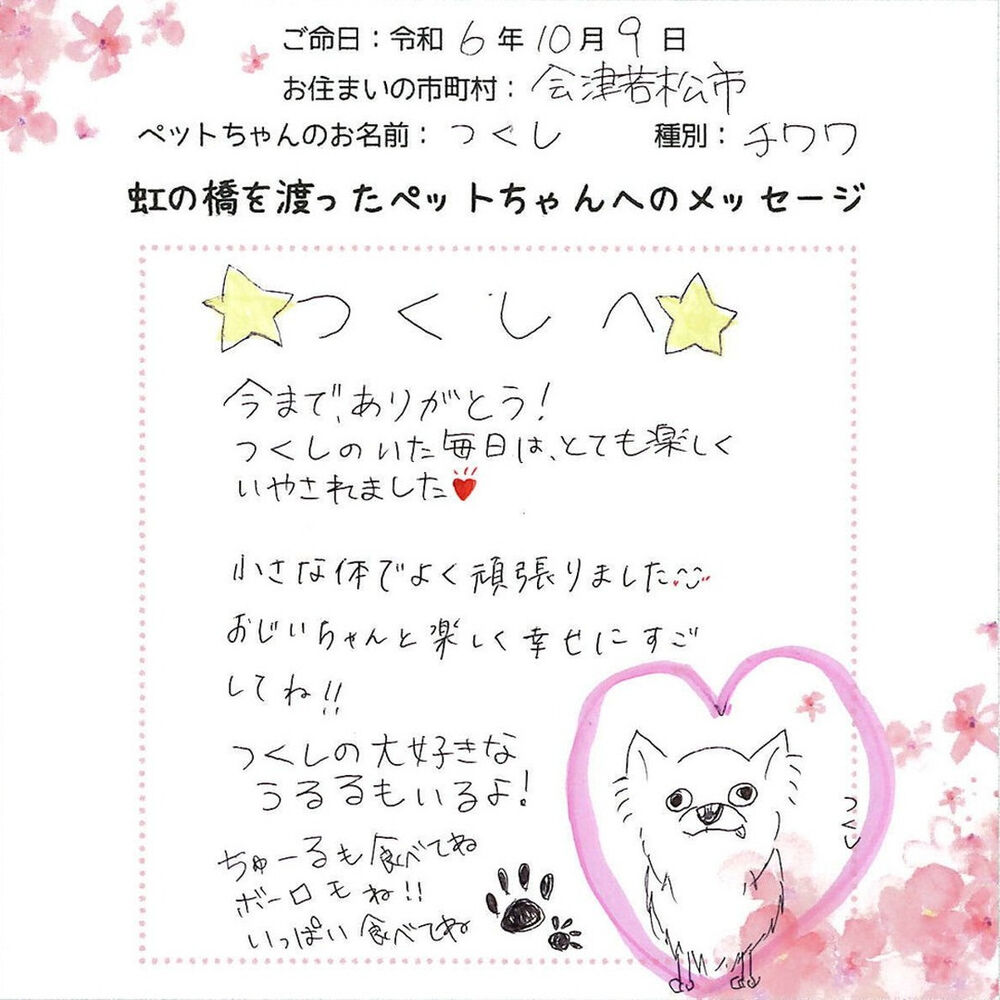 ご命日：令和 6 年 10 月 9 日
お住まいの市町村：会津若松市
ペットちゃんのお名前：つくし　種別：チワワ
虹の橋を渡ったペットちゃんへのメッセージ
つくしへ
今まで、ありがとう！
つくしのいた毎日は、とても楽しく
いやされました
小さな体でよく頑張りました
おじいちゃんと楽しく幸せにすご
してね!!
つくしの大好きな
うるるもいるよ！
ちゅーるも食べてね
ボーロもね!!
いっぱい食べてね
つくし